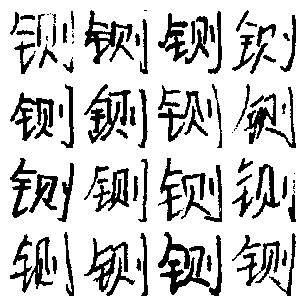 铡铡铡铡
铡铡铡铡
铡铡铡铡
铡铡铡铡